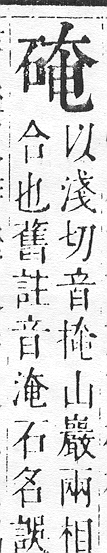 硽
以淺切音掩山巖兩相
合也舊註音淹石名誤